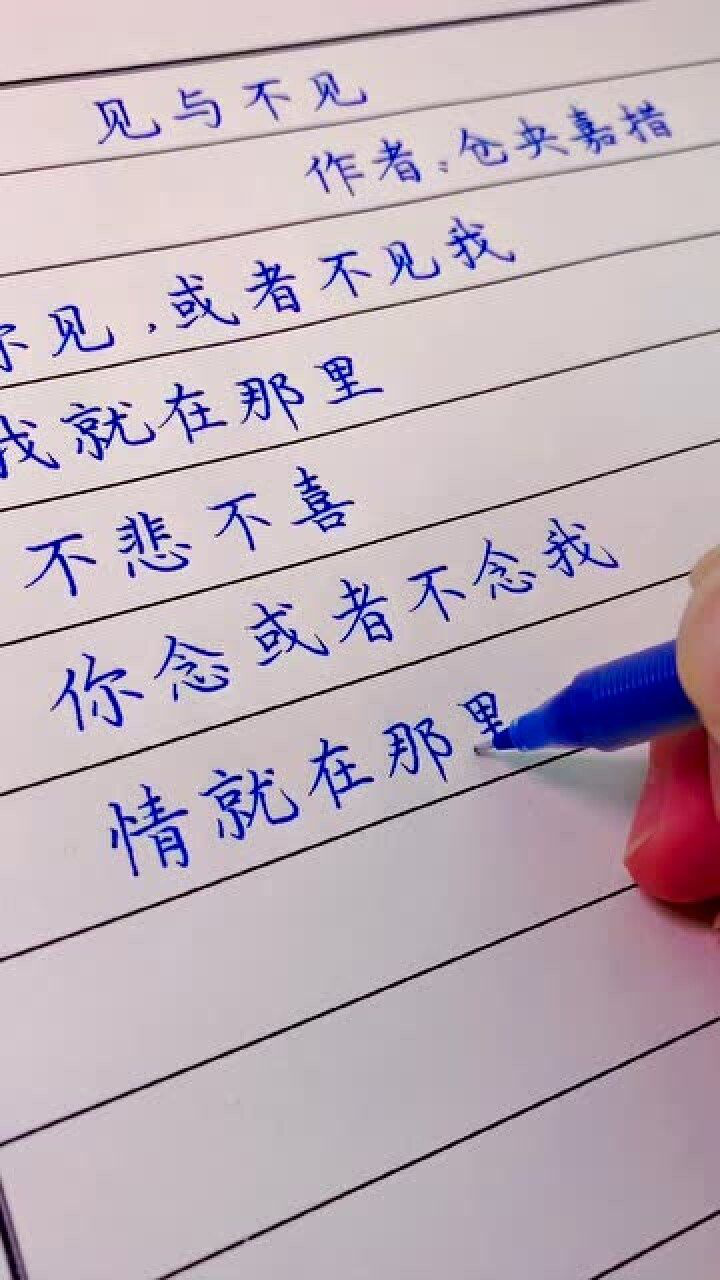 见与不见
作者:仓央嘉措
你见,或者不见我
我就在那里
不悲不喜
你念或者不念我
情就在那里